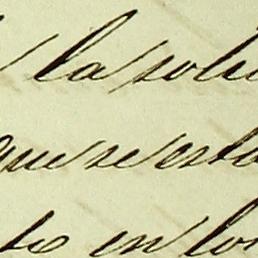 la solu
que se esta
te en lo